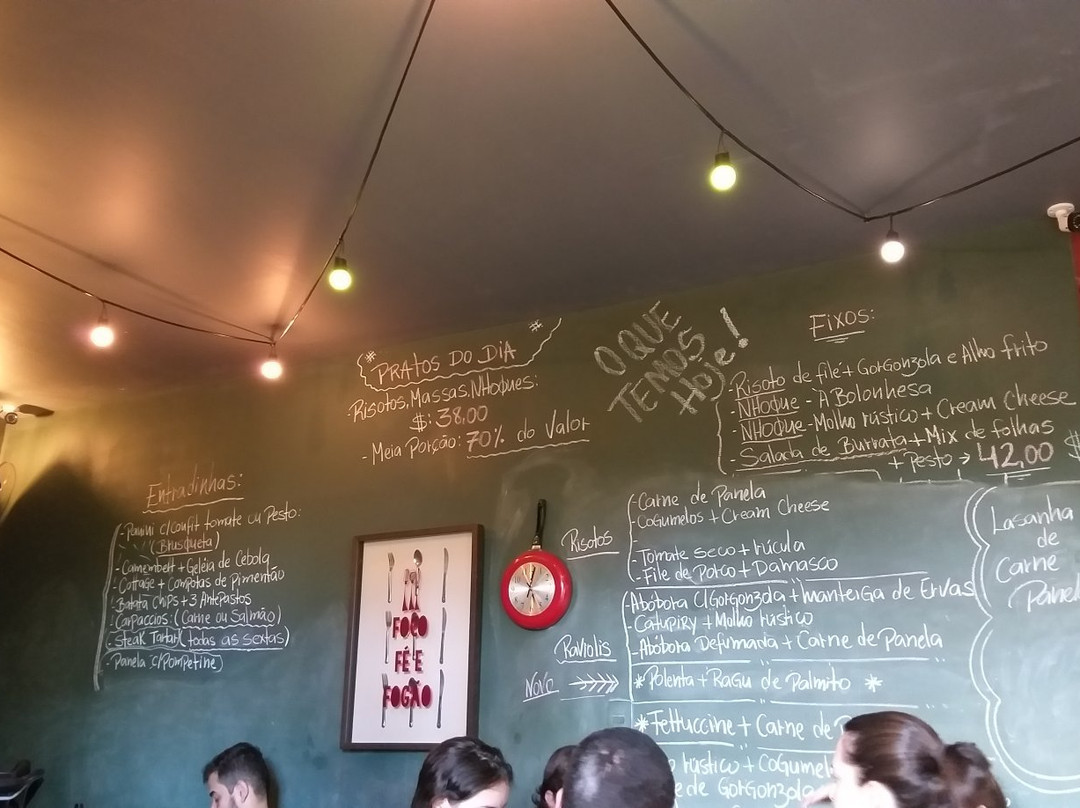 # PRATOS DO DIA #
- Risotos, Massas, NHoques:
$: 38,00
- Meia Porção: 70% do Valor
O QUE
TEMOS
Hoje!
Fixos:
- Risoto de filé + Gorgonzola e Alho frito
- NHoque - A Bolonhesa
- NHOQUE - Molho rústico + Cream Cheese
- Salada de Burrata + Mix de folhas
+ Pesto → 42,00
Entradinhas:
- Panini c/confit tomate ou Pesto:
(Brusqueta)
- Camembert + Geléia de Cebola
- Cottage + Compotas de Pimentão
- Batata Chips + 3 Antepastos
- Carpaccios: (Carne ou Salmão)
- Steak Tartar (todas as sextas)
- Panela c/Pompetine)
FOCO
FÉ E
FOGÃO
Risotos
- Carne de Panela
- Cogumelos + Cream Cheese
-
- Tomate seco + rúcula
- File de Porco + Damasco
Raviolis
- Abóbora c/Gorgonzola + Manteiga de Ervas
- Catupiry + Molho rústico
- Abóbora Defumada + Carne de Panela
Novo
* Polenta + Ragu de Palmito *
* Fettuccine + Carne de
rústico + Cogumel
e de Gorgonzola
Lasanha
de
Carne
Panel